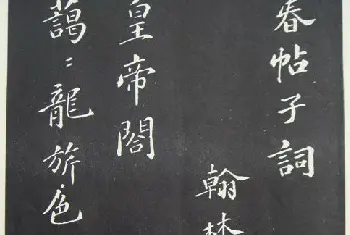 春帖子詞
翰林
皇帝閤
藹〻龍旂色